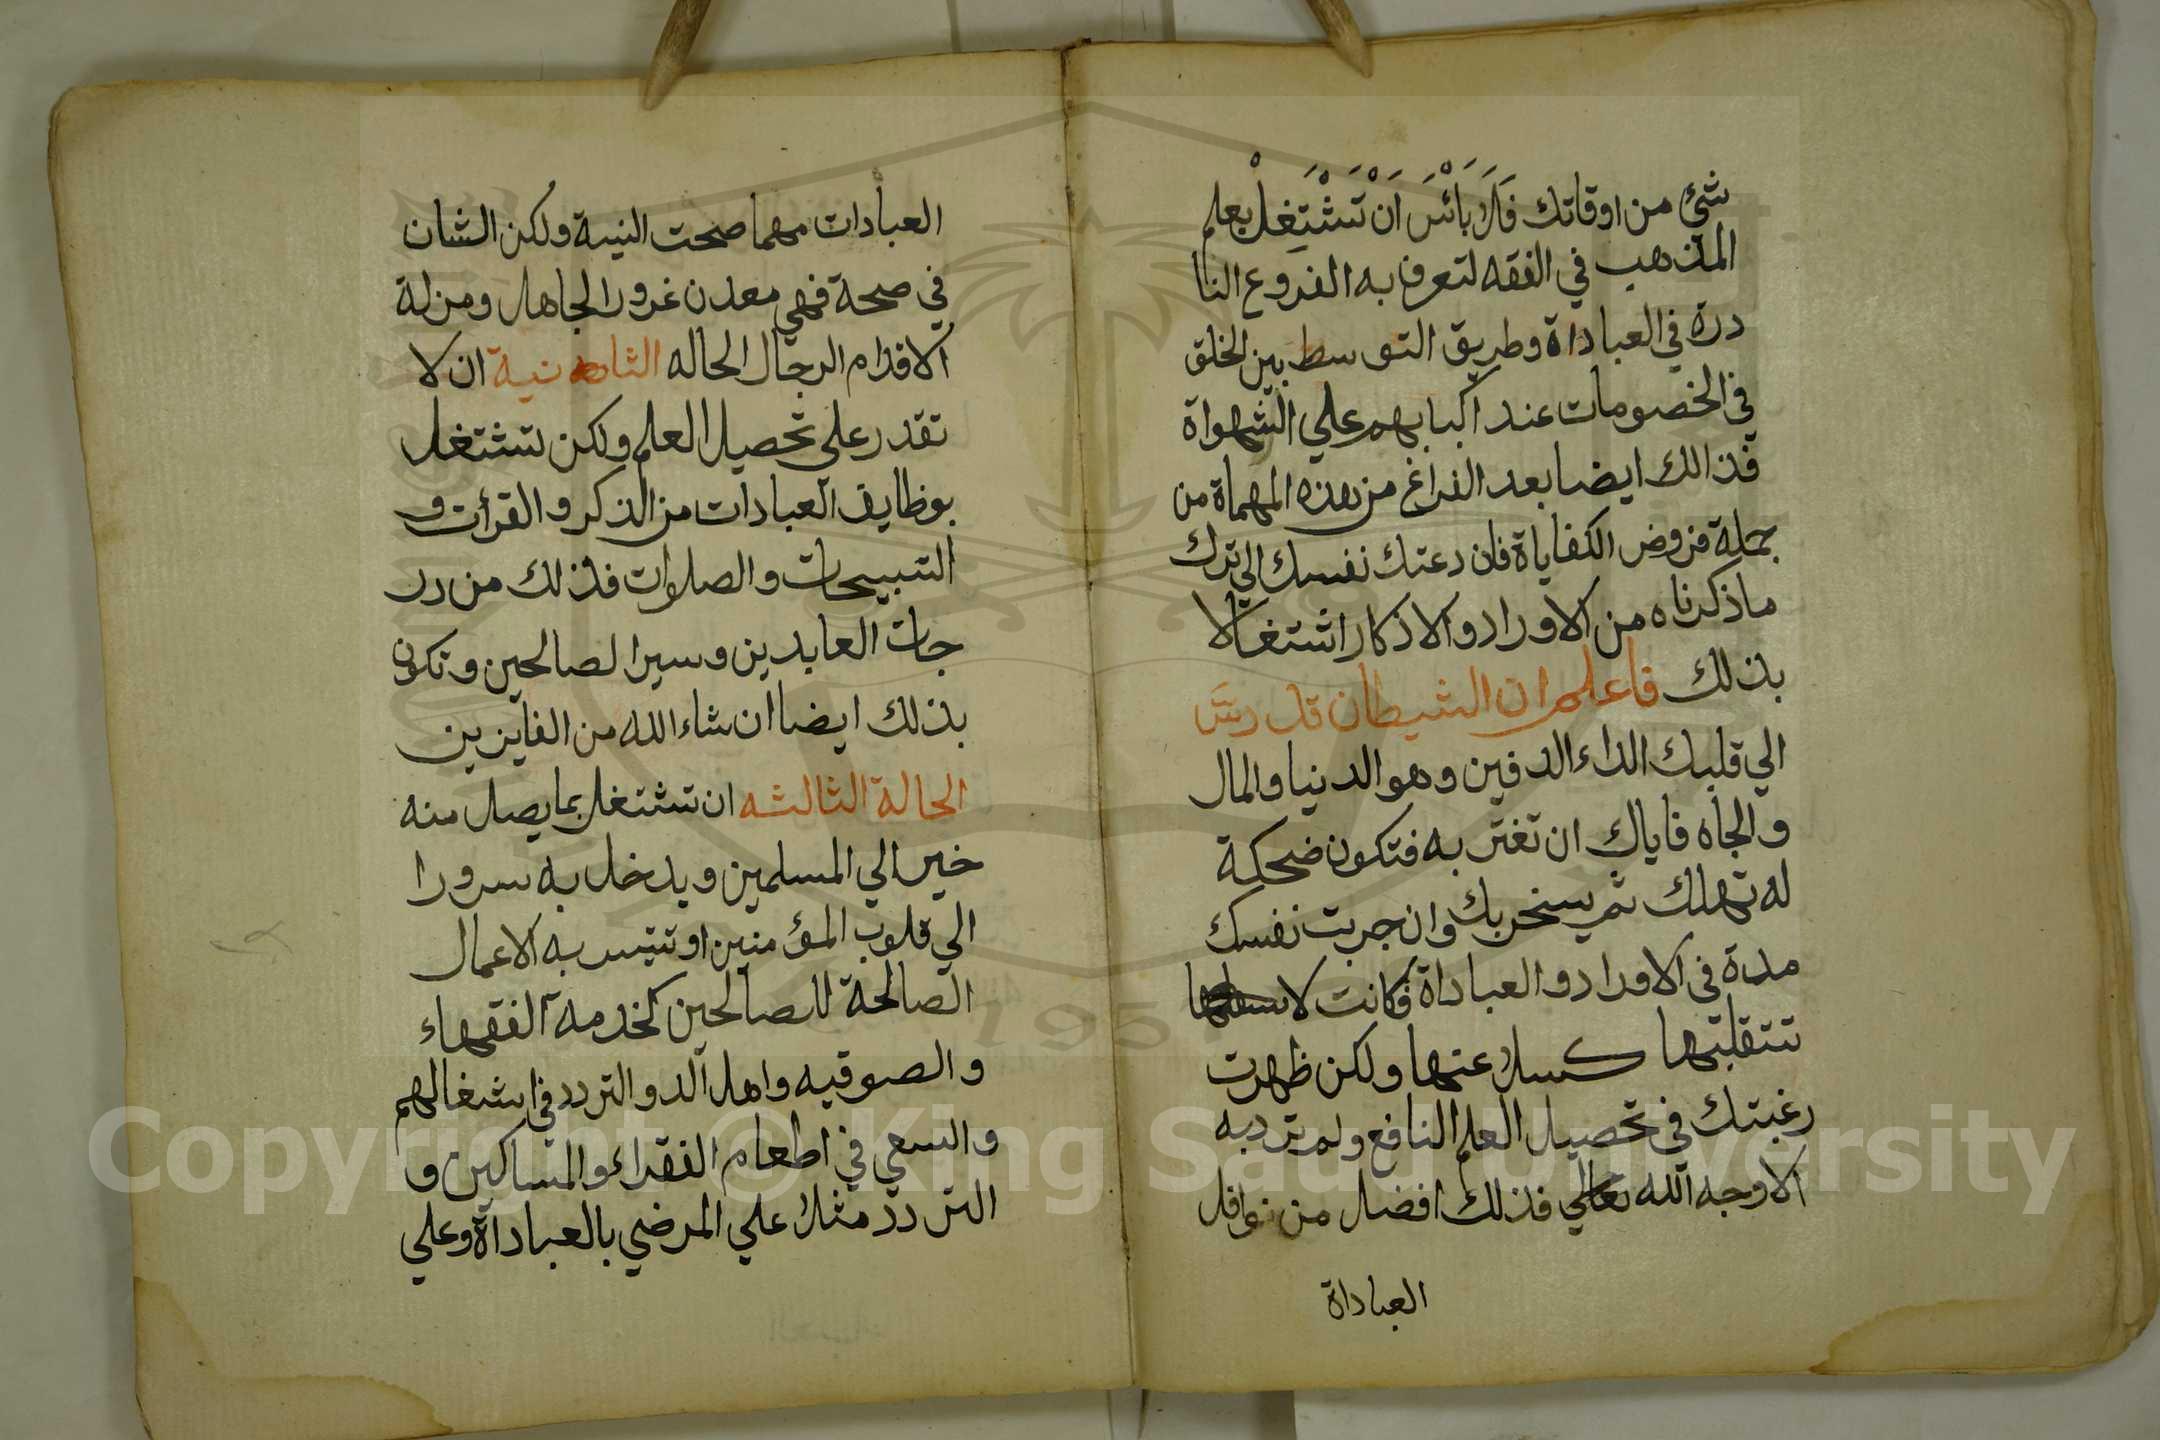 شيءٍ من اوقاتك فَلَا بَأْسَ اَنْ تَشْتَغِلْ بعلم
المذهب في الفقه لتعرف به الفروع النا
درة في العباداة وطريق التوسط بين الخلق
في الخصومات عند اكبابهم علي الشهواة
فذالك ايضا بعد الفراغ من هذه المهماة من
جملة فروض الكفاياة فان دعتك نفسك الي ترك
ما ذكرناه من الاوراد والاذكار اشتغالا
بذلك فاعلم ان الشيطان قد دسَّ
الي قلبك الداء الدفين وهو الدنيا والمال
والجاه فاياك ان تغتر به فتكون ضحكة
له تهلك ثم يسخر بك وان جربت نفسك
مدة في الاوراد والعباداة فكانت لا
تتقلبتها كسلا عنها ولكن ظهرت
رغبتك في تحصيل العلم النافع ولم ترد به
الا وجه الله تعالي فذلك افضل من نوافل
العباداة
العبادات مهما صحت النية ولكن الشان
في صحة فهي معدن غرور الجاهل ومزلة
الاقدام الرجال الحاله الثانية ان لا
تقدر علي تحصيل العلم ولكن تشتغل
بوظايف العبادات من الذكر والقرأت و
التسبيحات والصلوات فذلك من در
جات العابدين وسير الصالحين وتكون
بذلك ايضا ان شاء الله من الفايزين
الحالة الثالثه ان تشتغل بما يصل منه
خير الي المسلمين ويدخل به سرورا
الي قلوب المؤمنين او تتيسر به الاعمال
الصالحة للصالحين كخدمة الفقهاء
والصوفيه واهل الد والتردد في اشغالهم
والسعي في اطعام الفقراء والمساكين و
التردد مثلا علي المرضي بالعباداة وعلي
Copyright © King Saud University
1957